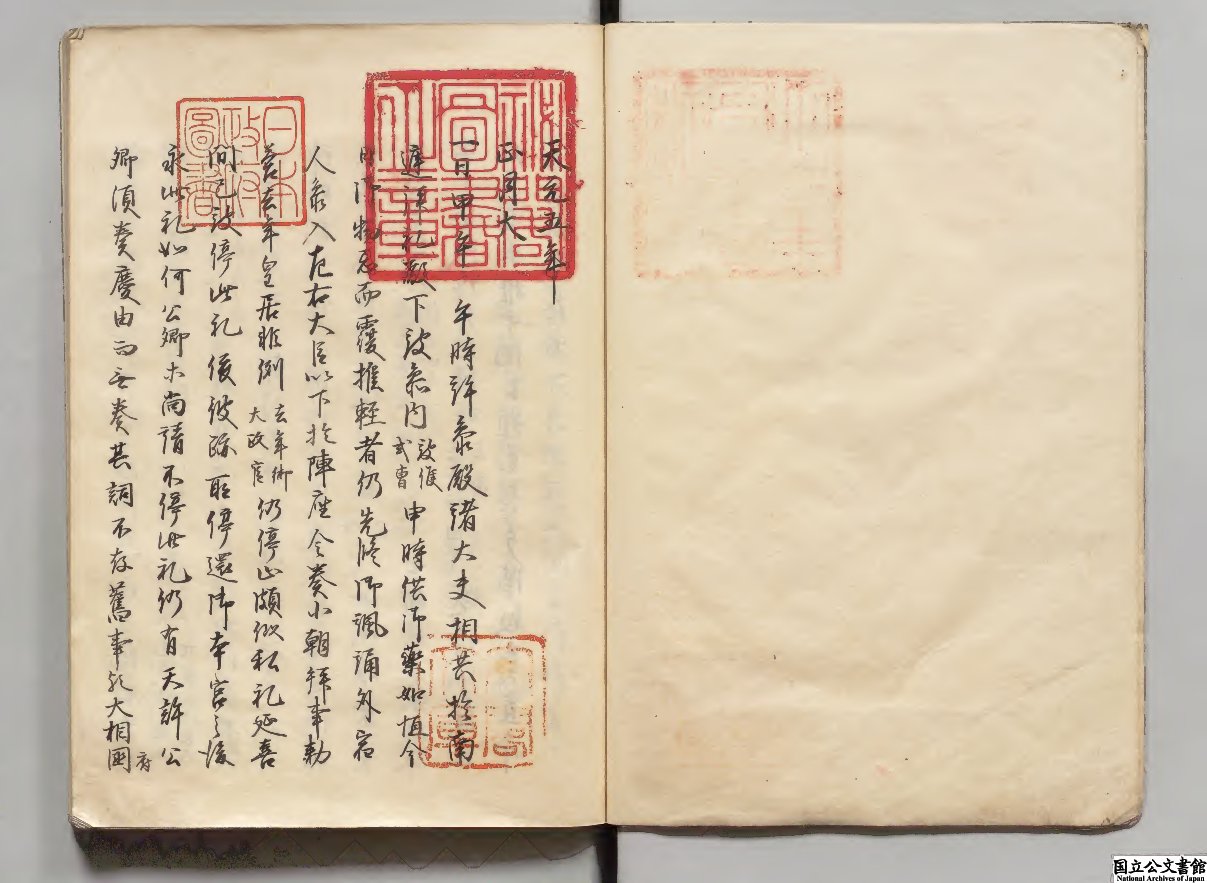 天元五年
正月大
一日甲午 午時許参殿諸大夫相共於南
庭拝礼殿下被参内被候式曹申時供御薬如恒今
日御物忌而覆推軽者仍先修御諷誦外宿
人参入左右大臣以下於陣座令奏小朝拝事勅
答去年皇居非例去年御大政官仍停止頗似私礼延喜
間已被停此礼後彼跡取停還御本宮之後
永此礼如何公卿等尚請不停此礼仍有天許公
卿須奏慶由而無奏其詞不存舊事歟大相國府
秘閣圖書之章
日本政府圖書
国立公文書館
National Archives of Japan